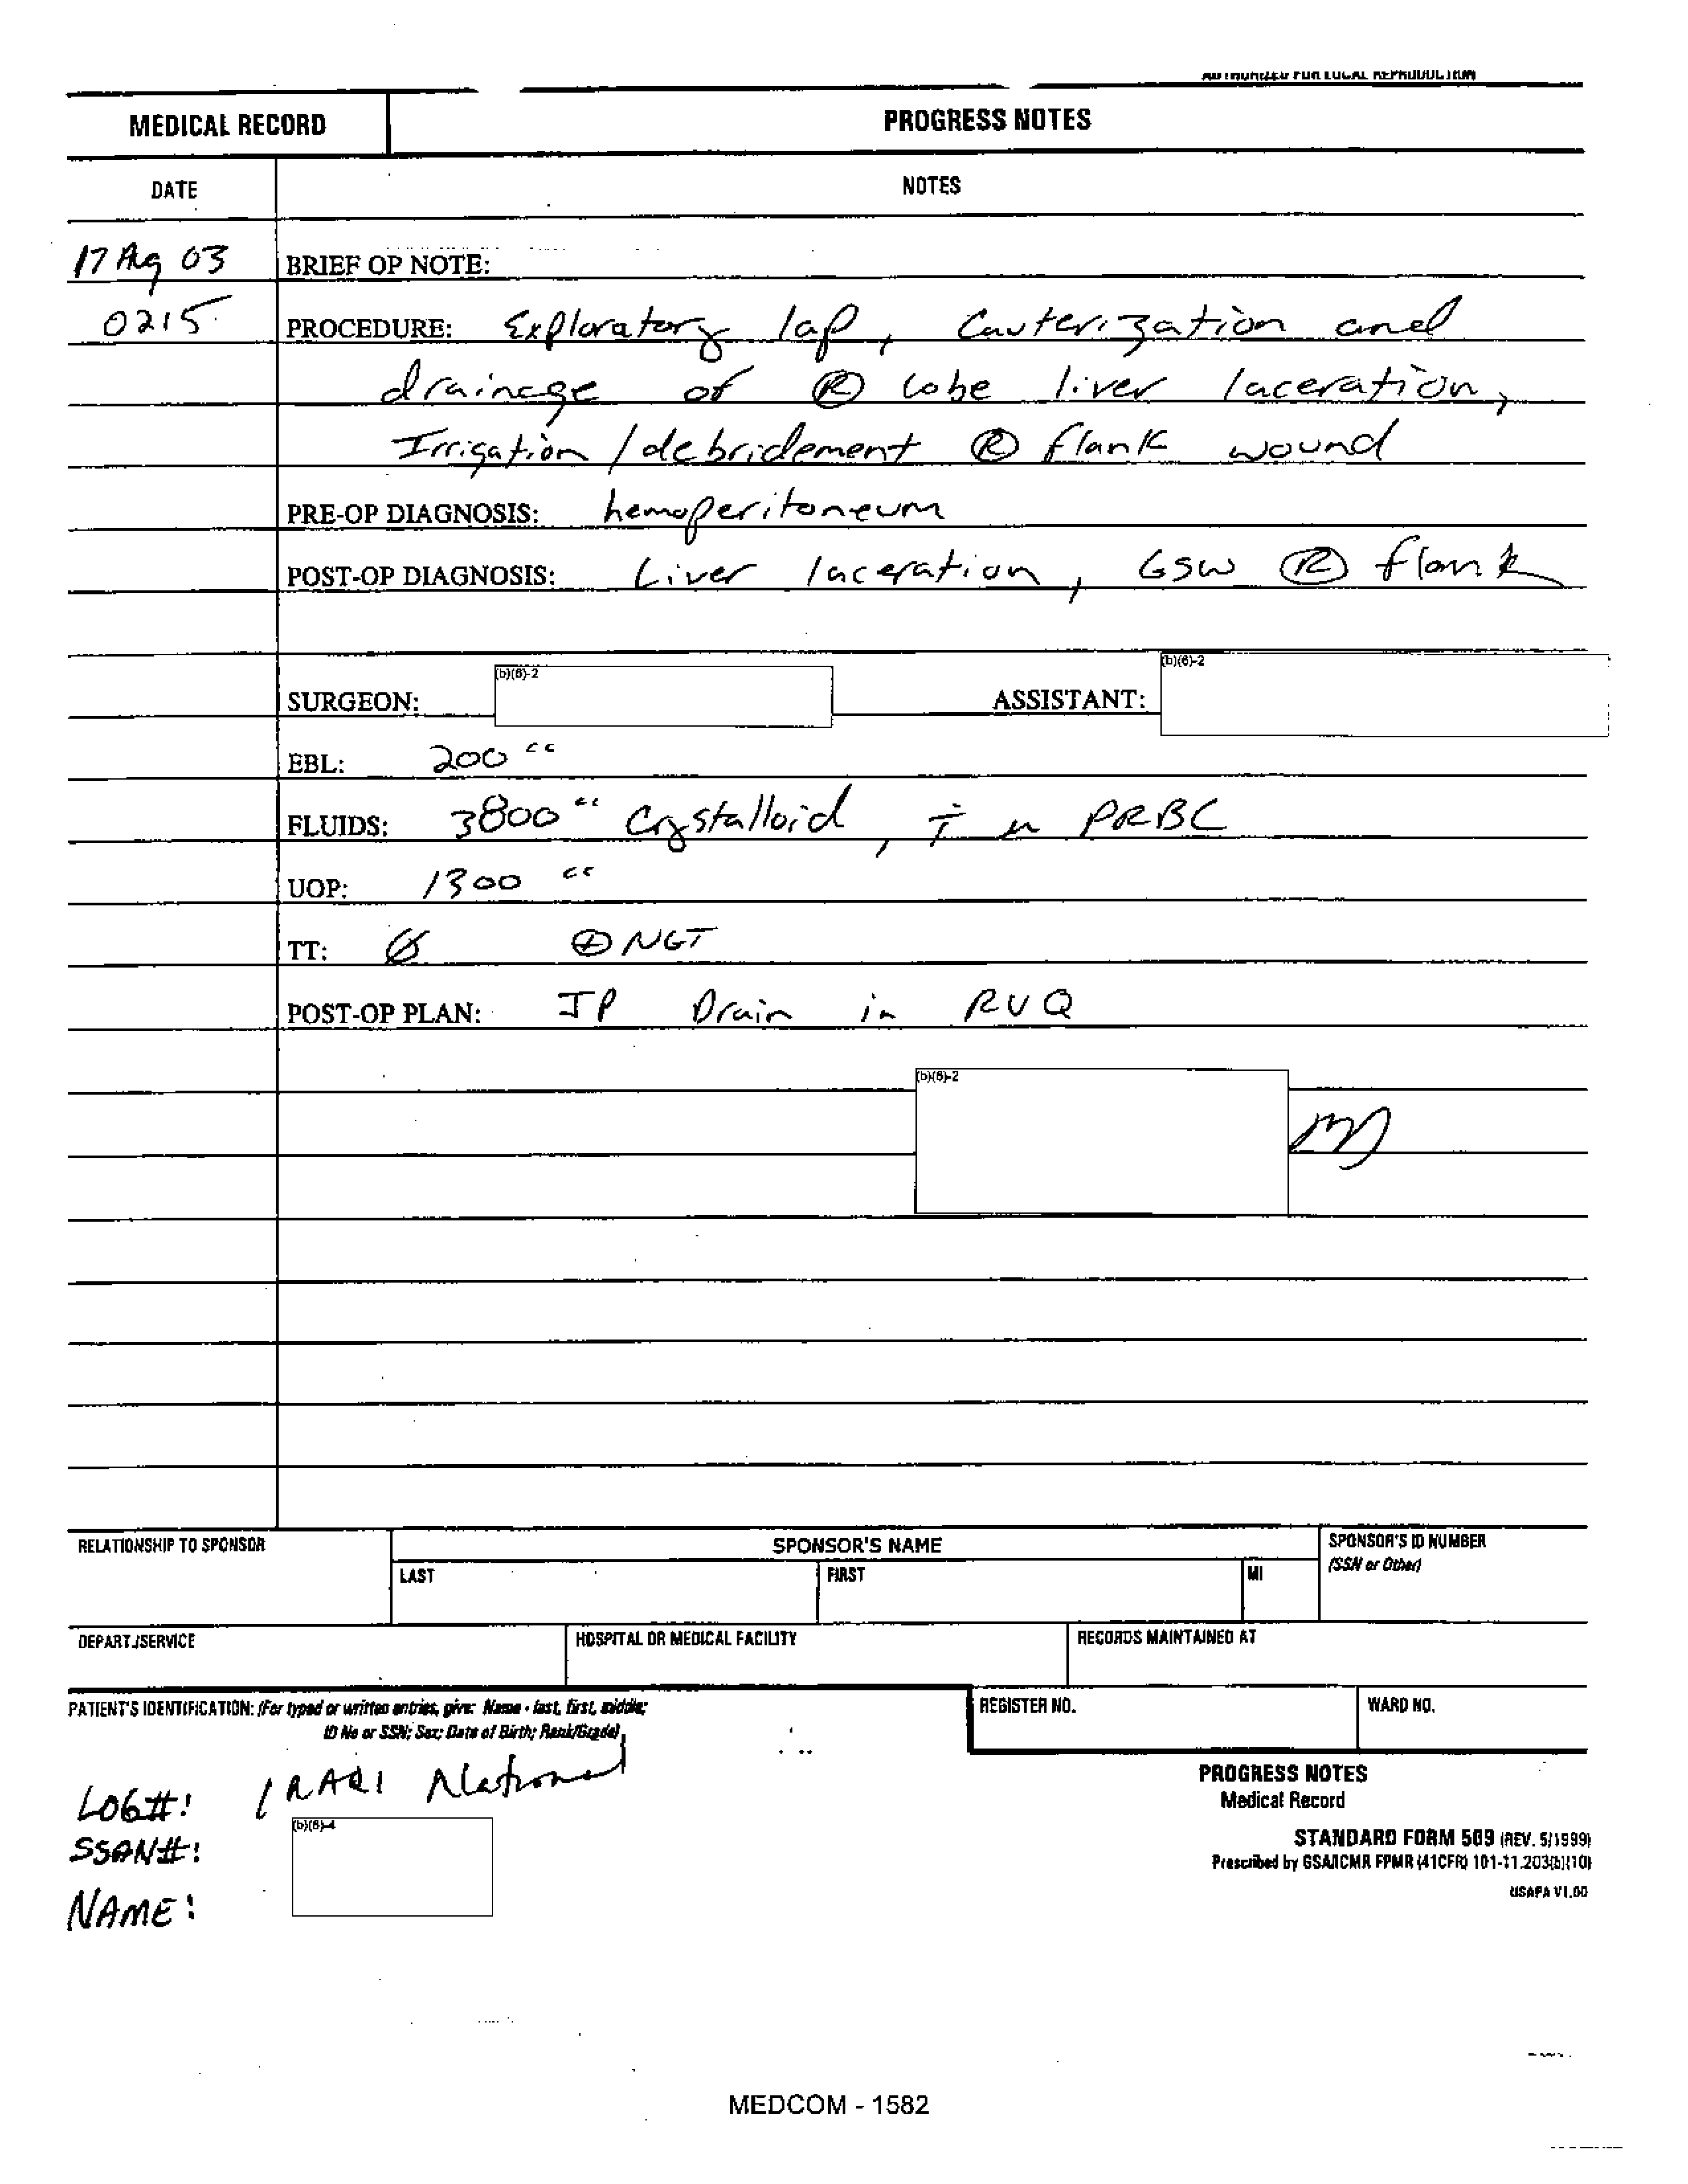 AUTHORIZED FOR LOCAL REPRODUCTION
MEDICAL RECORD PROGRESS NOTES
DATE NOTES
17 Aug 03 BRIEF OP NOTE:
0215 PROCEDURE: Exploratory lap, Cauterization and
drainage of Ⓡ lobe liver laceration,
Irrigation / debridement Ⓡ flank wound
PRE-OP DIAGNOSIS: hemoperitoneum
POST-OP DIAGNOSIS: Liver laceration, GSW Ⓡ flank
(b)(6)-2 (b)(6)-2
SURGEON: ASSISTANT:
EBL: 200 cc
FLUIDS: 3800 cc Crystalloid, i u PRBC
UOP: 1300 cc
TT: Ø ⊕ NGT
POST-OP PLAN: JP Drain in RUQ
(b)(6)-2
MD
RELATIONSHIP TO SPONSOR SPONSOR'S NAME SPONSOR'S ID NUMBER
(SSN or Other)
LAST FIRST MI
DEPART./SERVICE HOSPITAL OR MEDICAL FACILITY RECORDS MAINTAINED AT
PATIENT'S IDENTIFICATION: (For typed or written entries, give: Name - last, first, middle;
ID No or SSN; Sex; Date of Birth; Rank/Grade)
REGISTER NO. WARD NO.
LOG#: IRAQI National
SSAN#: (b)(6)-4
NAME:
PROGRESS NOTES
Medical Record
STANDARD FORM 509 (REV. 5/1999)
Prescribed by GSA/ICMR FPMR (41CFR) 101-11.203(b)(10)
USAPA V1.00
MEDCOM - 1582